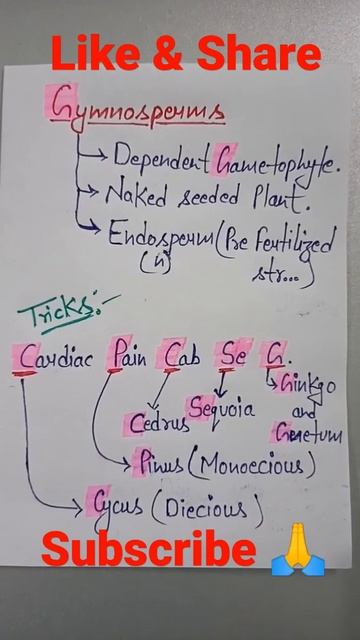 Like & Share
Gymnosperms
Dependent Gametophyte.
Naked seeded Plant.
Endosperm (Pre Fertilized
(n) str...)
Tricks:-
Cardiac Pain Cab Se G.
Ginkgo
and
Gnetum
Sequoia
Cedrus
Pinus (Monoecious)
Cycus (Diecious)
Subscribe 🙏